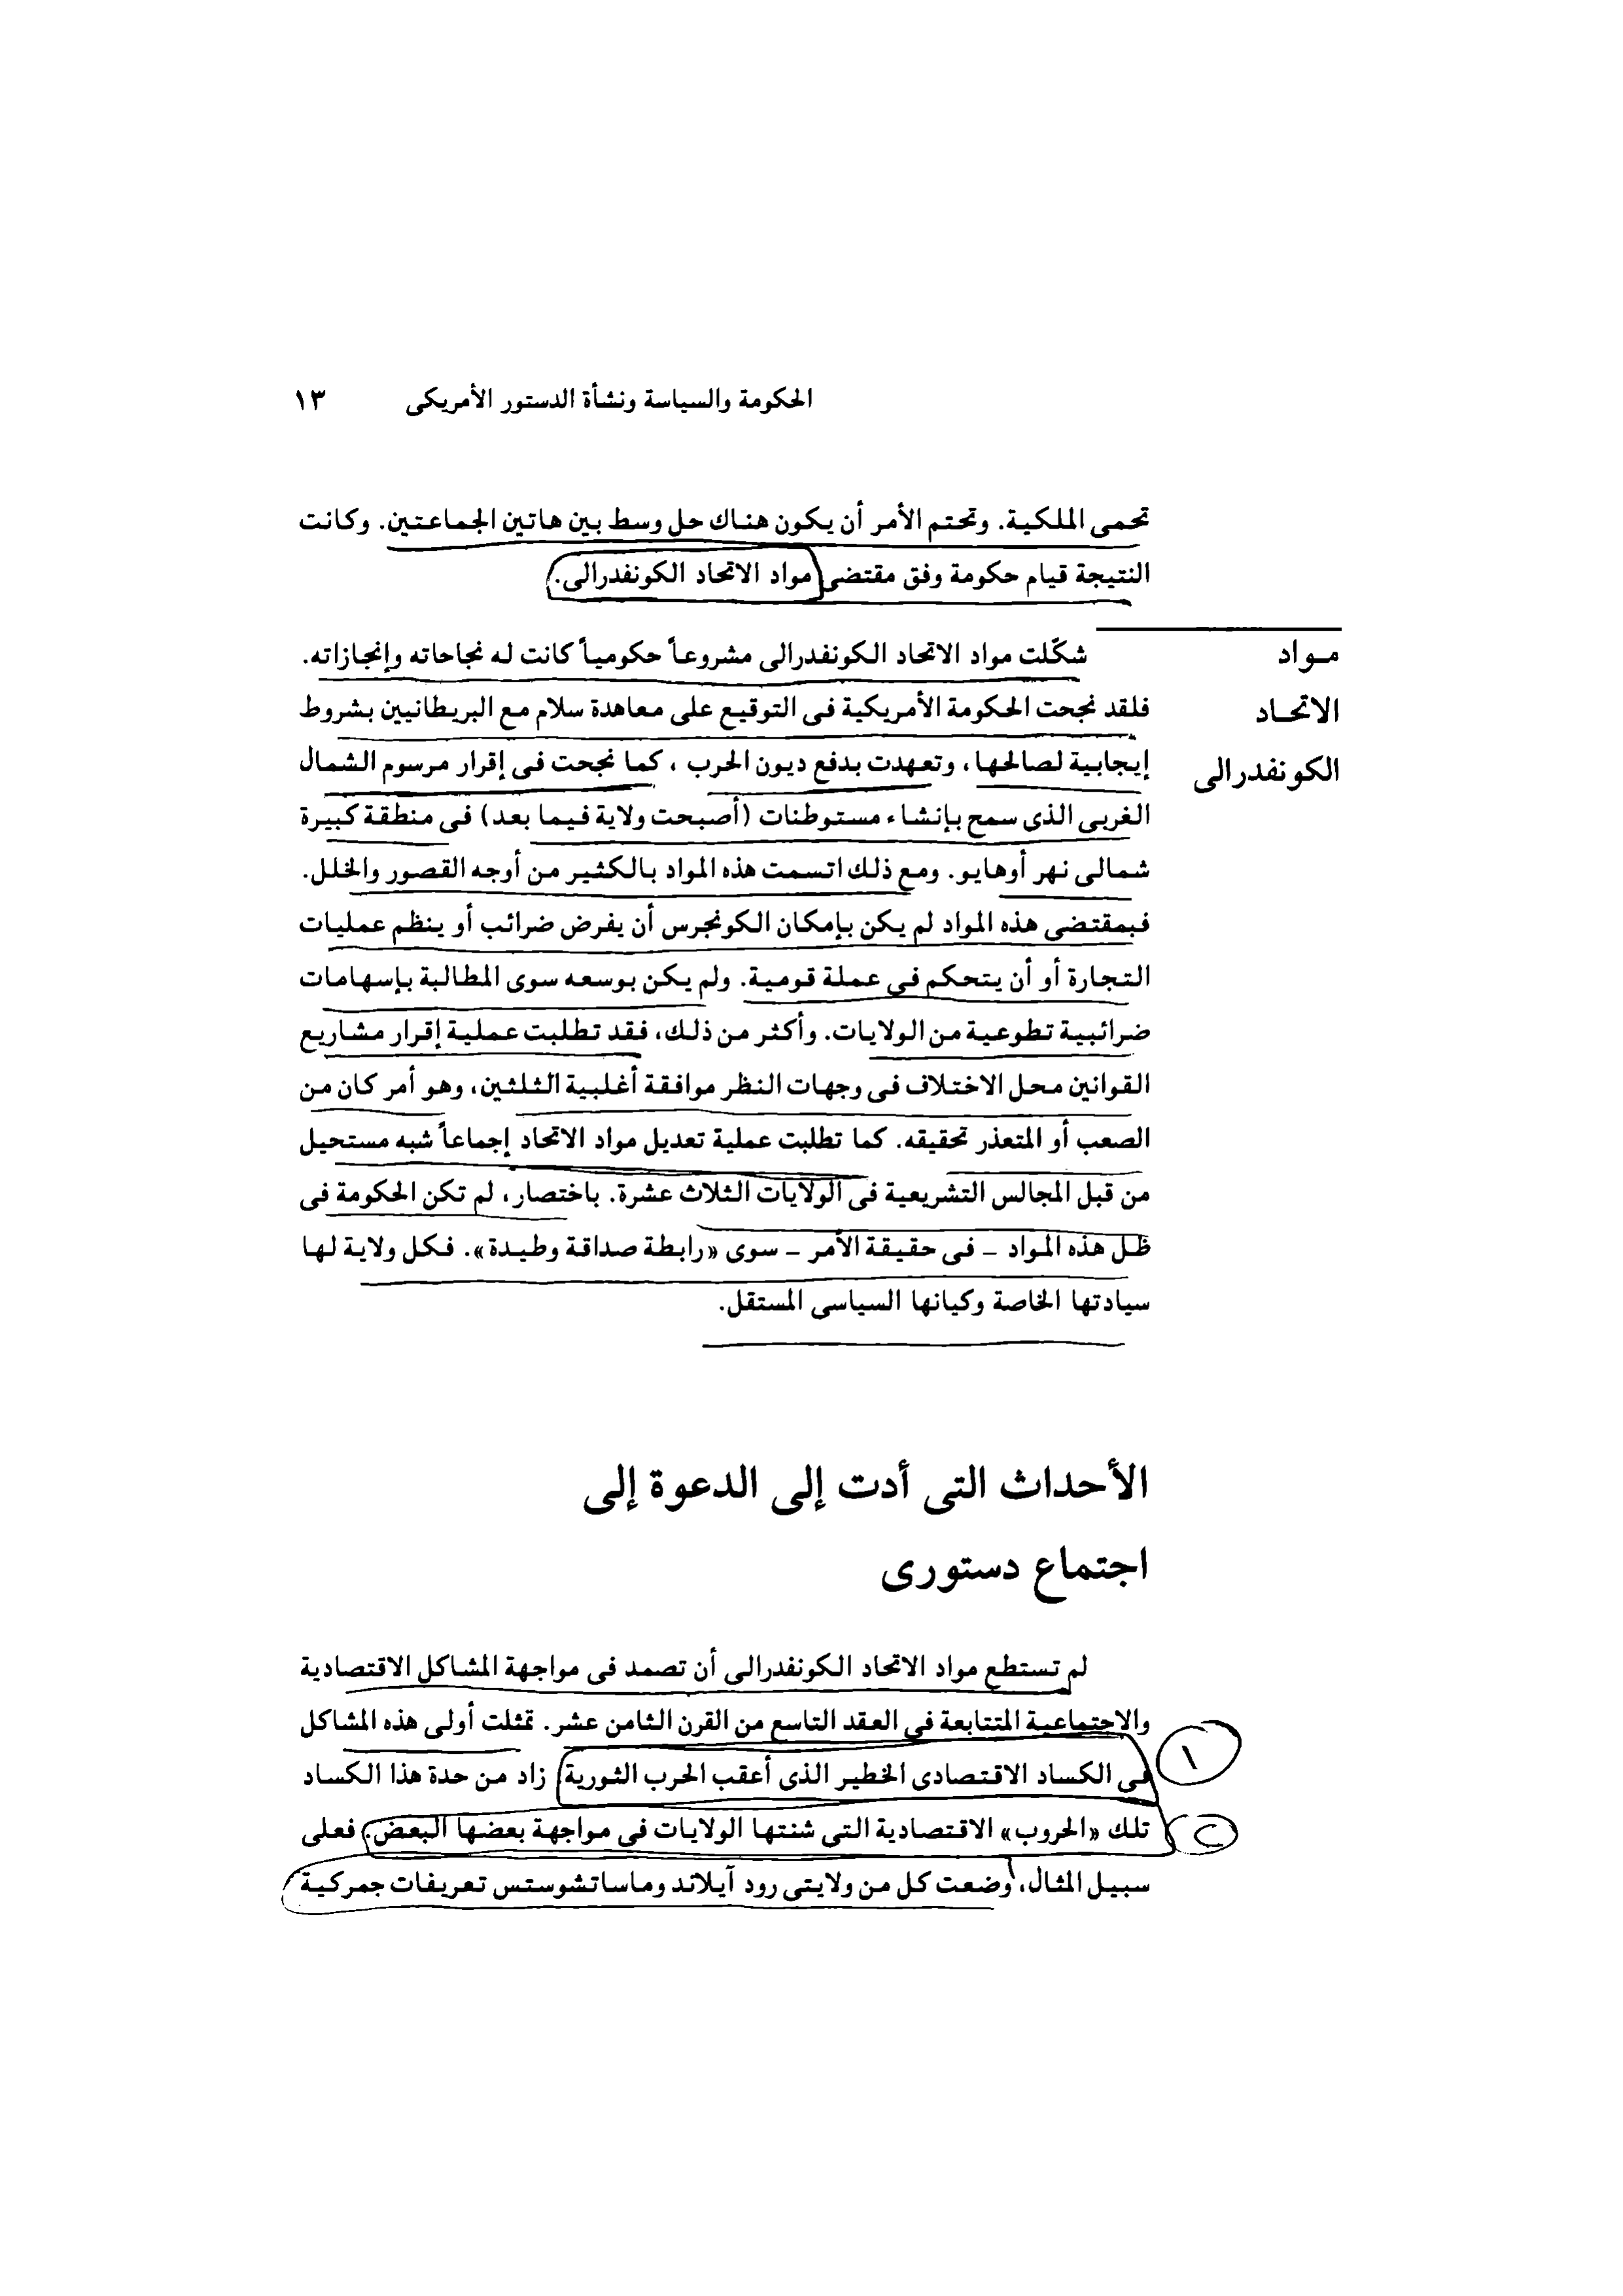 الحكومة والسياسة ونشأة الدستور الأمريكى ١٣
تحمى الملكية. وتحتم الأمر أن يكون هناك حل وسط بين هاتين الجماعتين. وكانت
النتيجة قيام حكومة وفق مقتضى مواد الاتحاد الكونفدرالى.
مواد
الاتحاد
الكونفدرالى
شكّلت مواد الاتحاد الكونفدرالى مشروعاً حكومياً كانت له نجاحاته وإنجازاته.
فلقد نجحت الحكومة الأمريكية فى التوقيع على معاهدة سلام مع البريطانيين بشروط
إيجابية لصالحها، وتعهدت بدفع ديون الحرب ، كما نجحت فى إقرار مرسوم الشمال
الغربى الذى سمح بإنشاء مستوطنات (أصبحت ولاية فيما بعد) فى منطقة كبيرة
شمالى نهر أوهايو. ومع ذلك اتسمت هذه المواد بالكثير من أوجه القصور والخلل.
فبمقتضى هذه المواد لم يكن بإمكان الكونجرس أن يفرض ضرائب أو ينظم عمليات
التجارة أو أن يتحكم فى عملة قومية. ولم يكن بوسعه سوى المطالبة بإسهامات
ضرائبية تطوعية من الولايات. وأكثر من ذلك، فقد تطلبت عملية إقرار مشاريع
القوانين محل الاختلاف فى وجهات النظر موافقة أغلبية الثلثين، وهو أمر كان من
الصعب أو المتعذر تحقيقه. كما تطلبت عملية تعديل مواد الاتحاد إجماعاً شبه مستحيل
من قبل المجالس التشريعية فى الولايات الثلاث عشرة. باختصار، لم تكن الحكومة فى
ظل هذه المواد – فى حقيقة الأمر – سوى «رابطة صداقة وطيدة». فكل ولاية لها
سيادتها الخاصة وكيانها السياسى المستقل.
الأحداث التى أدت إلى الدعوة إلى
اجتماع دستورى
لم تستطع مواد الاتحاد الكونفدرالى أن تصمد فى مواجهة المشاكل الاقتصادية
والاجتماعية المتتابعة فى العقد التاسع من القرن الثامن عشر. تمثلت أولى هذه المشاكل
١
فى الكساد الاقتصادى الخطير الذى أعقب الحرب الثورية زاد من حدة هذا الكساد
تلك «الحروب» الاقتصادية التى شنتها الولايات فى مواجهة بعضها البعض. فعلى
سبيل المثال، وضعت كل من ولايتى رود آيلاند وماساتشوستس تعريفات جمركية